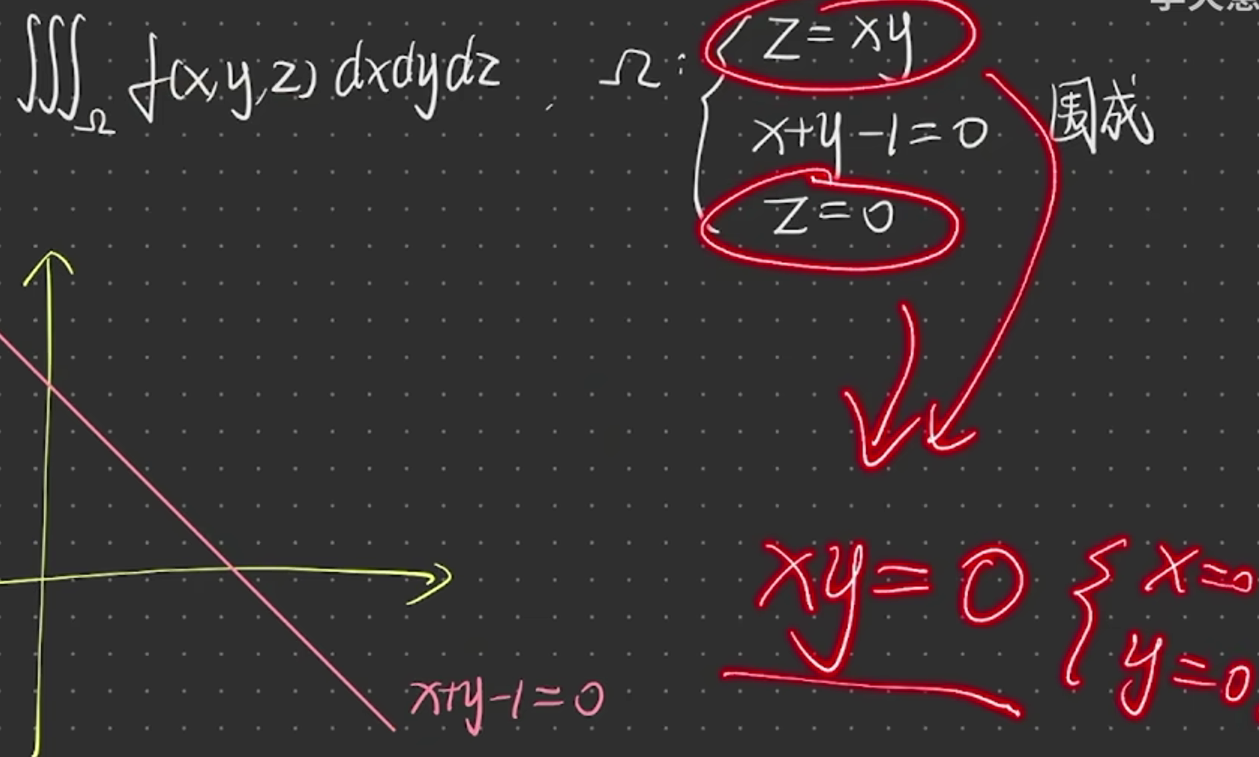 ∭_Ω f(x,y,z) dxdydz , Ω: { z=xy
x+y-1=0 围成
z=0
xy=0 { x=0
y=0
x+y-1=0